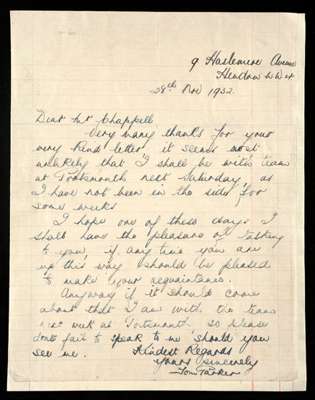 9 Haslemere Avenue
Hendon N.W.4
28th Nov 1952.
Dear Mr Chappell
Very many thanks for your
very kind letter, it seems most
unlikely that I shall be with team
at Portsmouth next Saturday, as
I have not been in the side for
some weeks.
I hope one of these days I
shall have the pleasure of talking
to you, if any time you are
up this way I should be pleased
to make your acquaintance.
Anyway if it should come
about that I am with the team
next week at Portsmouth so please
don't fail to speak to me should you
see me. Kindest Regards
Yours Sincerely
Tom